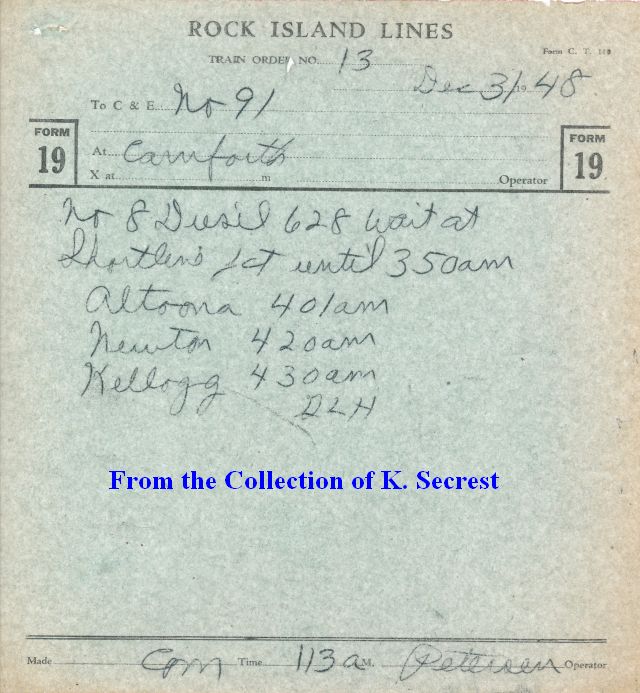 ROCK ISLAND LINES
Form C. T. 110
TRAIN ORDER NO. 13
Dec 31 1948
To C & E. No 91
FORM 19
FORM 19
At Carnforth
X at m Operator
No 8 Diesil 628 wait at
Shortline Jct until 350am
Altoona 401am
Newton 420am
Kellogg 430am
DLH
From the Collection of K. Secrest
Made Com Time 113a M. Petersen Operator